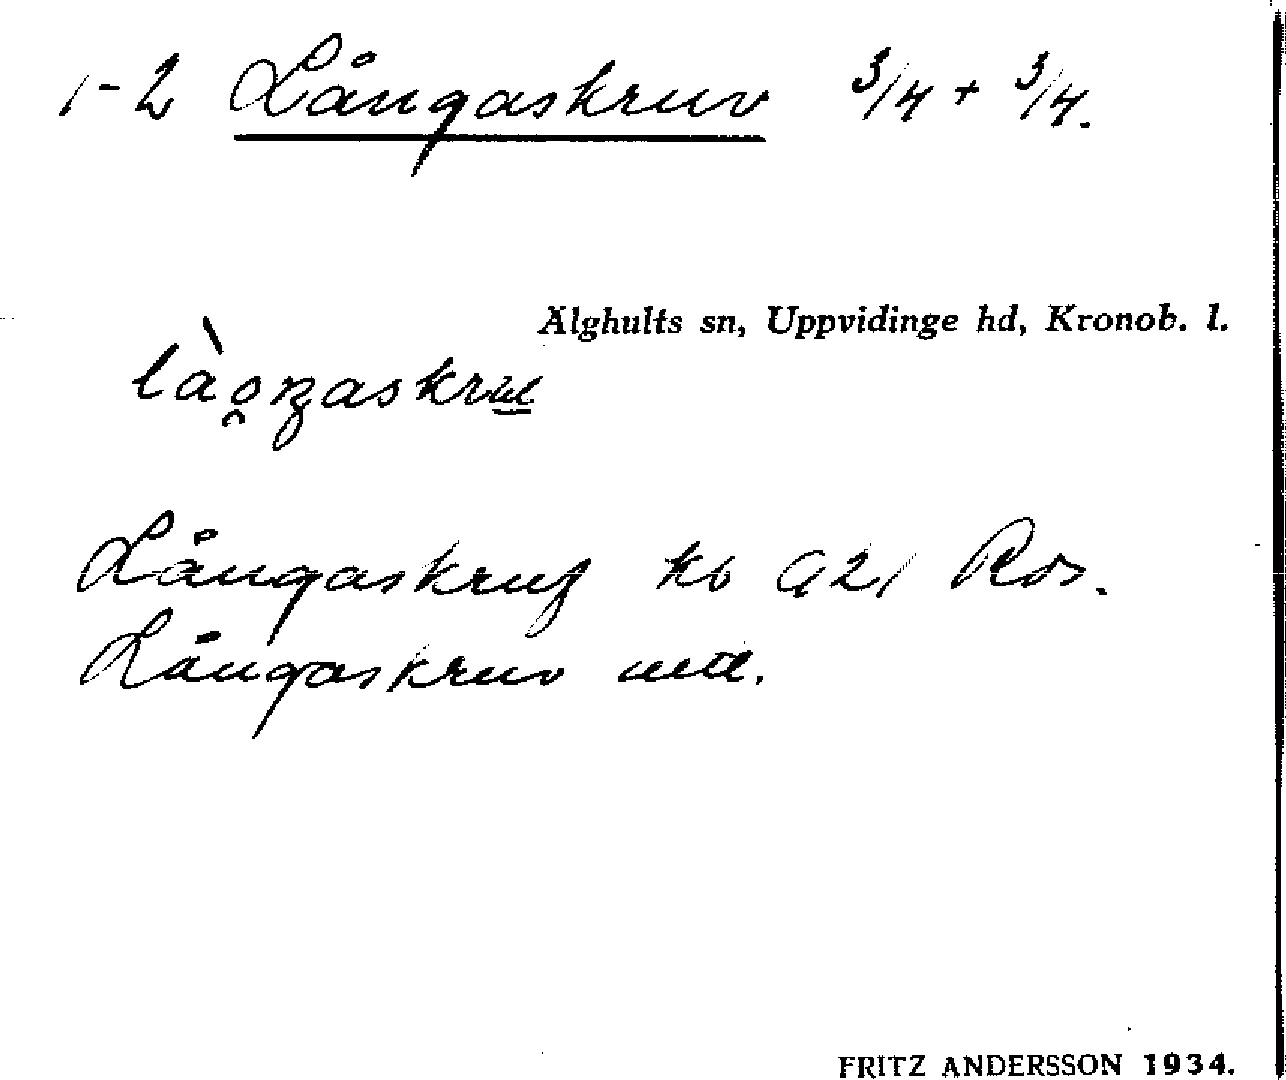 1-2 Långaskruv 3/4 + 3/4.
Älghults sn, Uppvidinge hd, Kronob. l.
Långaskruf kb a21 Ros.
Långaskruv
FRITZ ANDERSSON 1934.